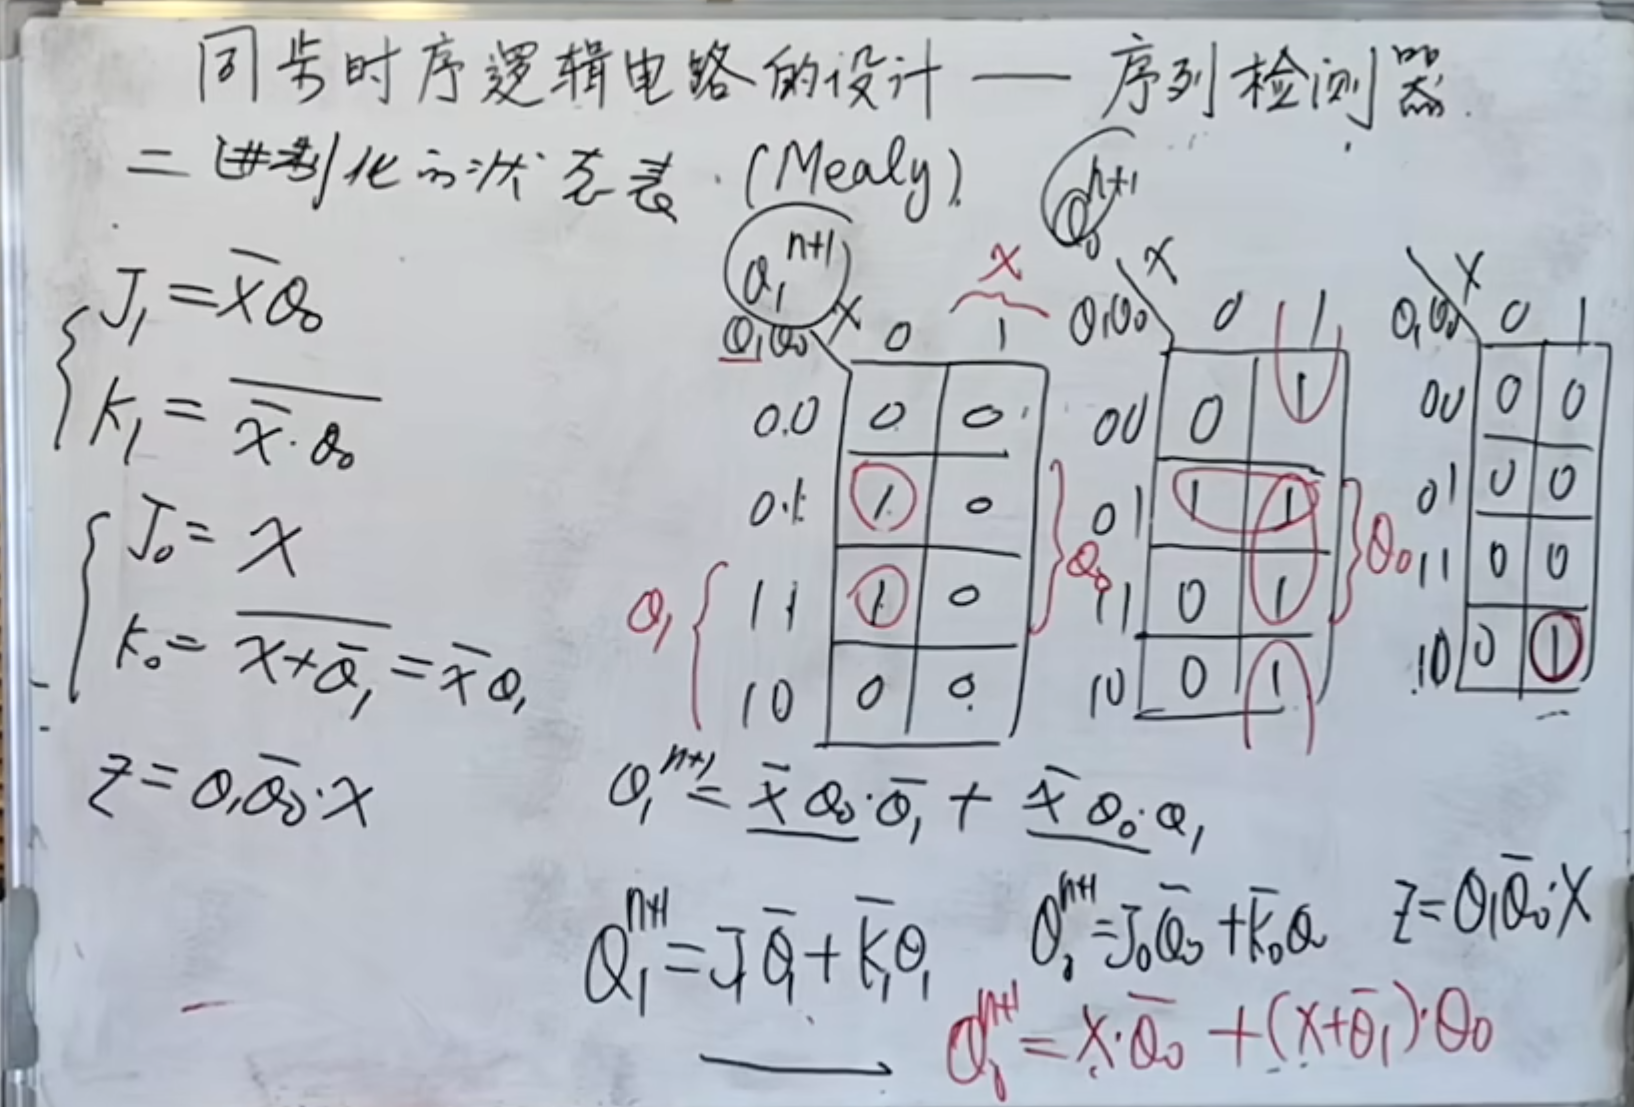 同步时序逻辑电路的设计 — 序列检测器
二进制化的状态表. (Mealy).
J₁ = X̅Q₀
K₁ = \overline{X̅·Q₀}
J₀ = X
K₀ = \overline{X+Q̅₁} = X̅Q₁
Z = Q₁Q̅₀·X
Q₁ⁿ⁺¹
X
Q₁Q₀ X 0 1
00 0 0
01 1 0
11 1 0
10 0 0
Q₁
Q₀
Q₀ⁿ⁺¹
X
Q₁Q₀ 0 1
00 0 1
01 1 1
11 0 1
10 0 1
Q₀
X
Q₁Q₀ 0 1
00 0 0
01 0 0
11 0 0
10 0 1
Q₁ⁿ⁺¹ = X̅Q₀·Q̅₁ + X̅Q₀·Q₁
Q₁ⁿ⁺¹ = J₁Q̅₁ + K̅₁Q₁
Q₀ⁿ⁺¹ = J₀Q̅₀ + K̅₀Q₀
Z = Q₁Q̅₀·X
Q₀ⁿ⁺¹ = X·Q̅₀ + (X+Q̅₁)·Q₀